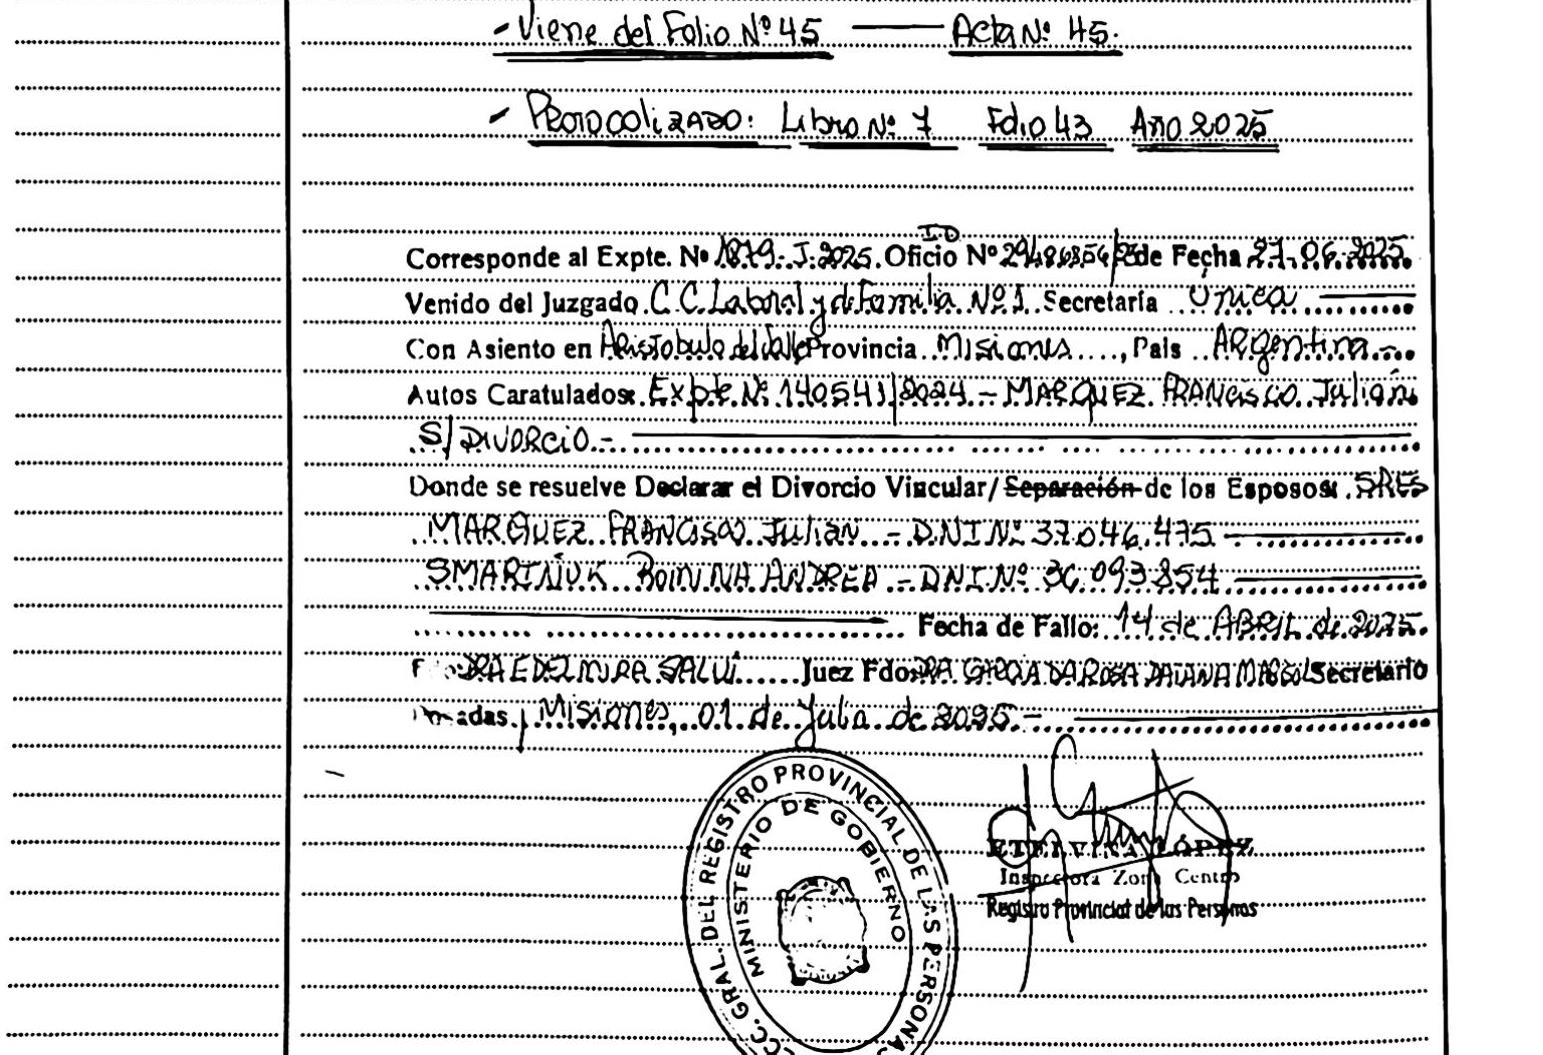 - Viene del Folio Nº 45 — Acta Nº 45.
- Protocolizado: Libro Nº 7 Folio 43 Año 2025
Corresponde al Expte. Nº 1879-J-2025. Oficio ID Nº 29486856/25 de Fecha 27-06-2025
Venido del Juzgado C.C. Laboral y de Familia Nº 1 Secretaría Única
Con Asiento en Aristobulo del Valle Provincia Misiones, País Argentina.-
Autos Caratulados: Expte Nº 140541/2024 - MARQUEZ FRANCISCO Julián
S/ DIVORCIO.-
Donde se resuelve Declarar el Divorcio Vincular/Separación de los Esposos: SRES
MARQUEZ FRANCISCO Julian - DNI Nº 37.046.475
SMARINIUK ANDREA - DNI Nº 36.093.854
Fecha de Fallo: 14 de ABRIL de 2025.
DRA EDELMIRA SALVÍ Juez Fdo: DRA GARCIA DA ROSA DAIANA Secretario
Misiones, 01 de Julio de 2025.-
GRAL. DEL REGISTRO PROVINCIAL DE LAS PERSONAS
MINISTERIO DE GOBIERNO
ETELVINA LÓPEZ
Inspectora Zona Centro
Registro Provincial de las Personas